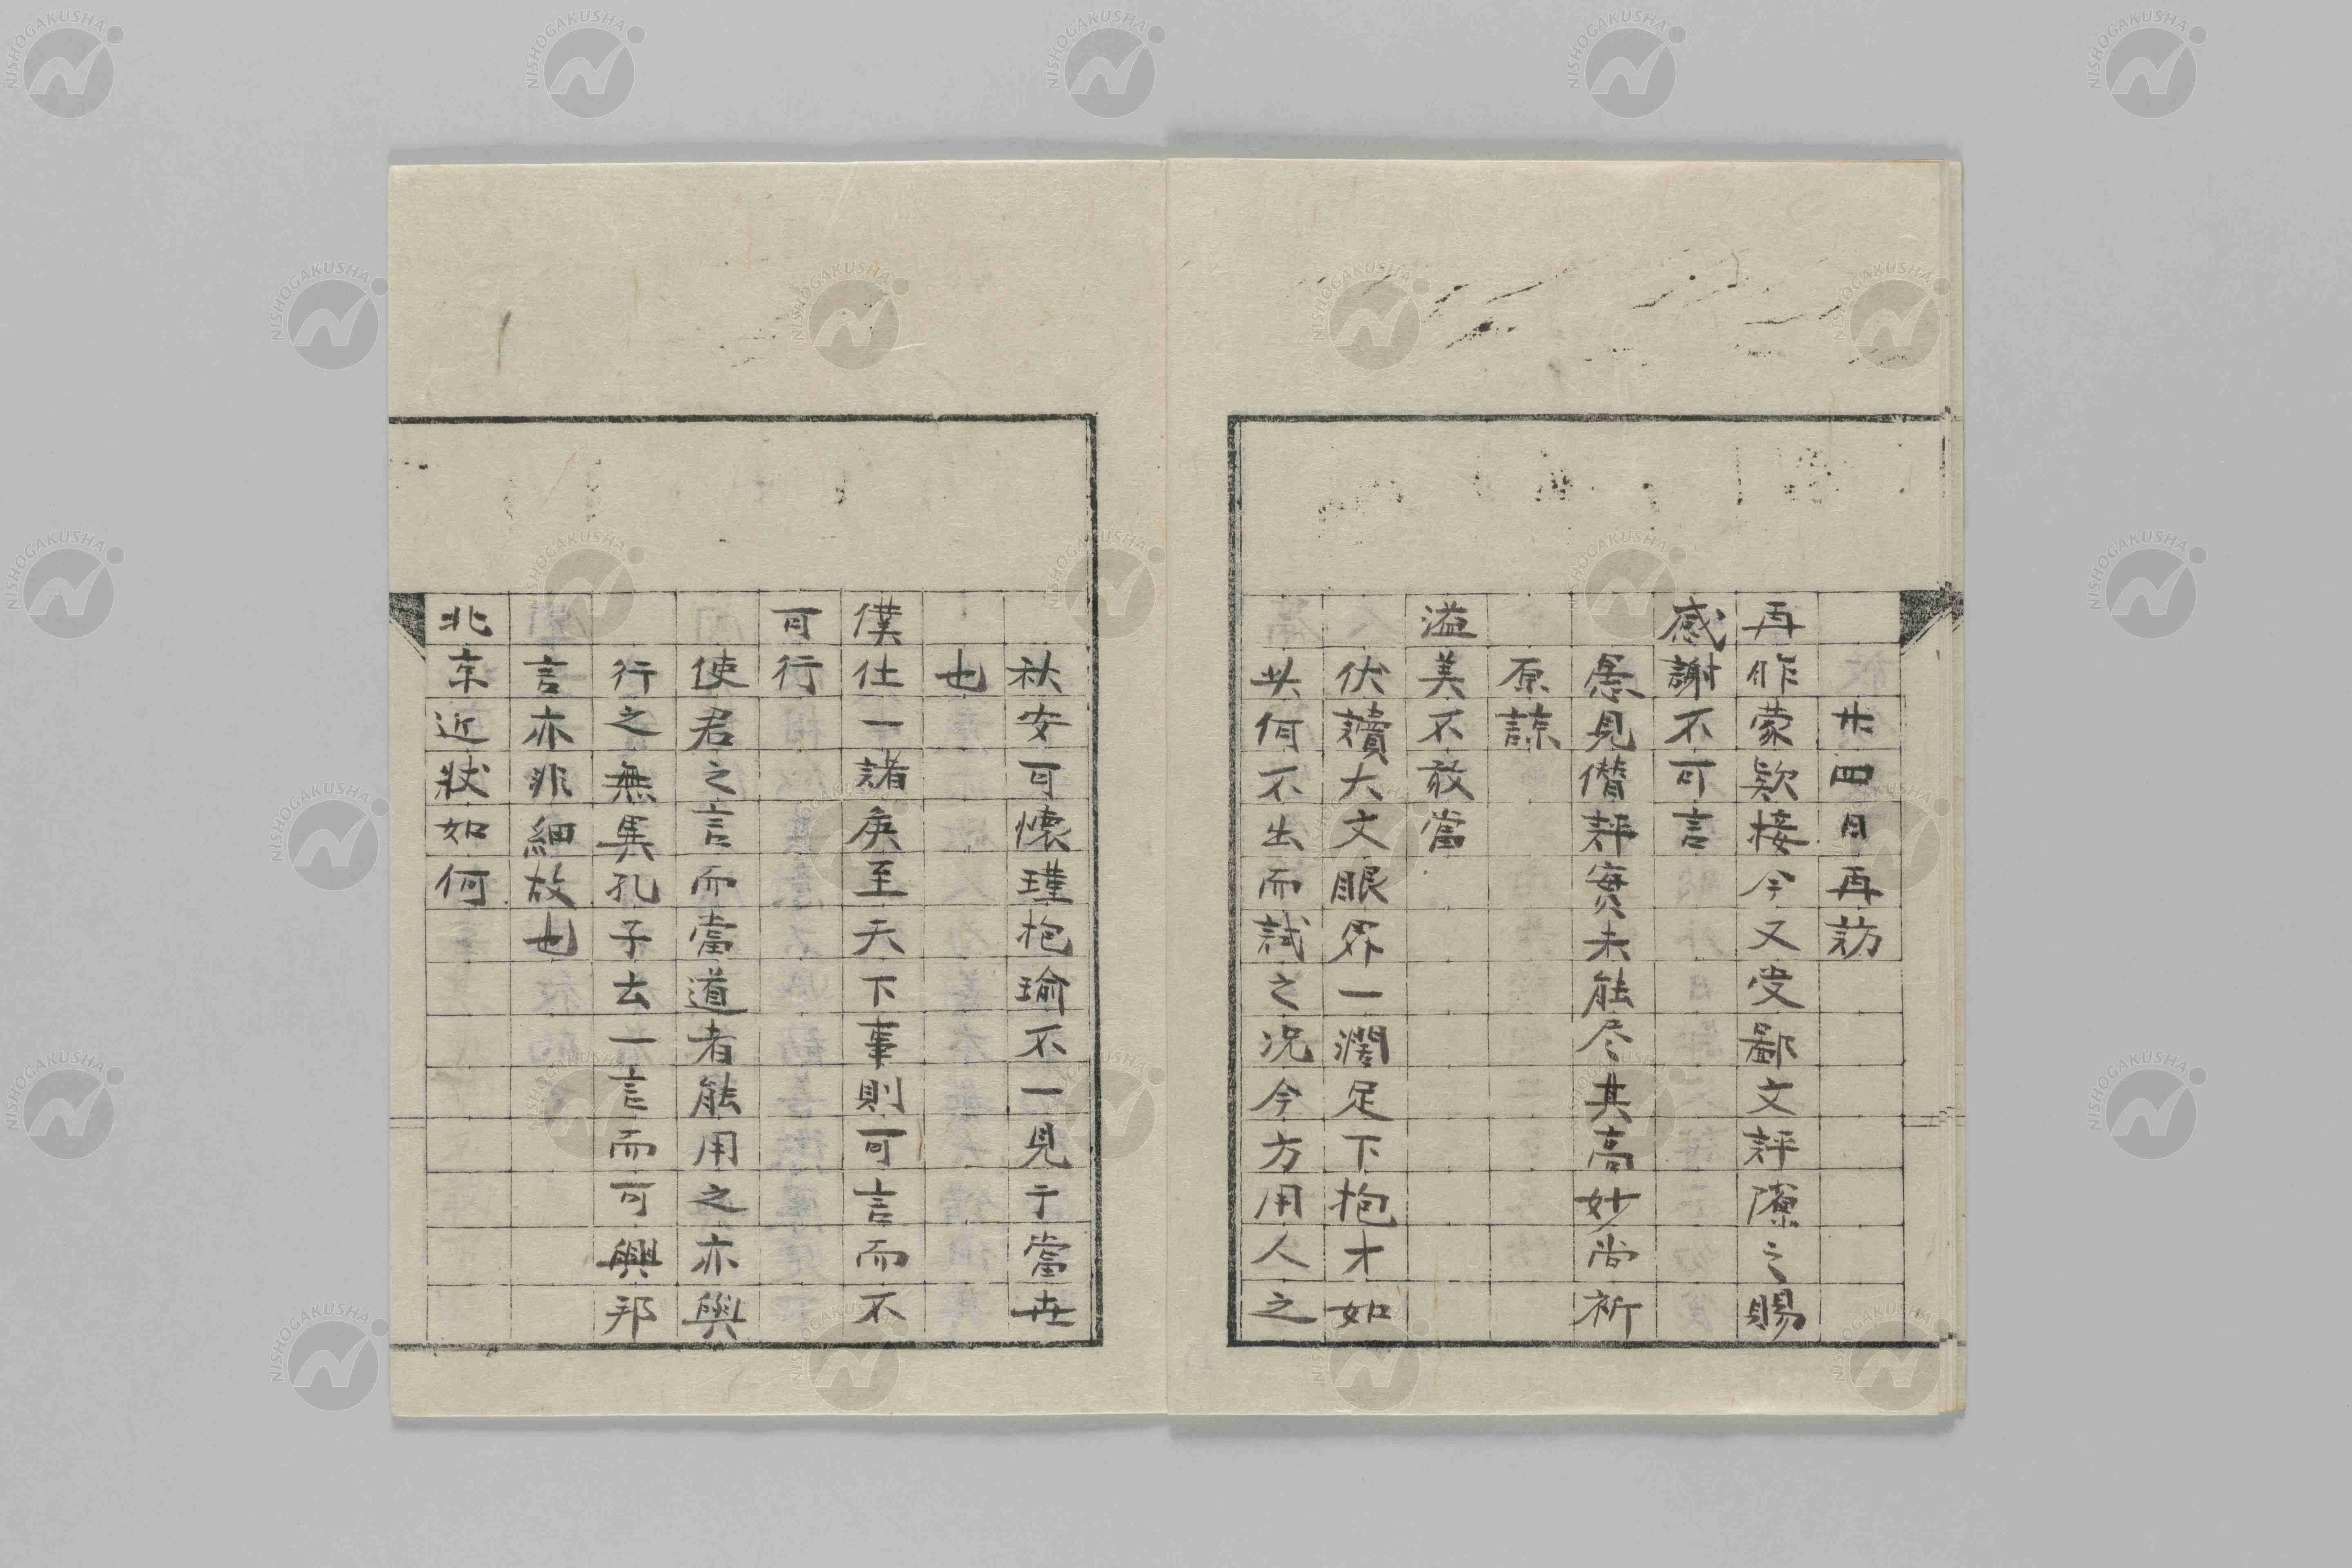 廿四日再訪
再昨蒙欵接今又受鄙文評隲之賜
感謝不可言
愚見僭評實未能尽其高妙尚祈
原諒
溢美不敢當
伏讀大文眼界一濶足下抱才如
此何不出而試之况今方用人之
秋安可懷瑾抱瑜不一見于當世
也
僕仕一諸侯至天下事則可言而不
可行
使君之言而當道者能用之亦與
行之無異孔子去一言而可興邦
言亦非細故也
北京近狀如何
NISHOGAKUSHA